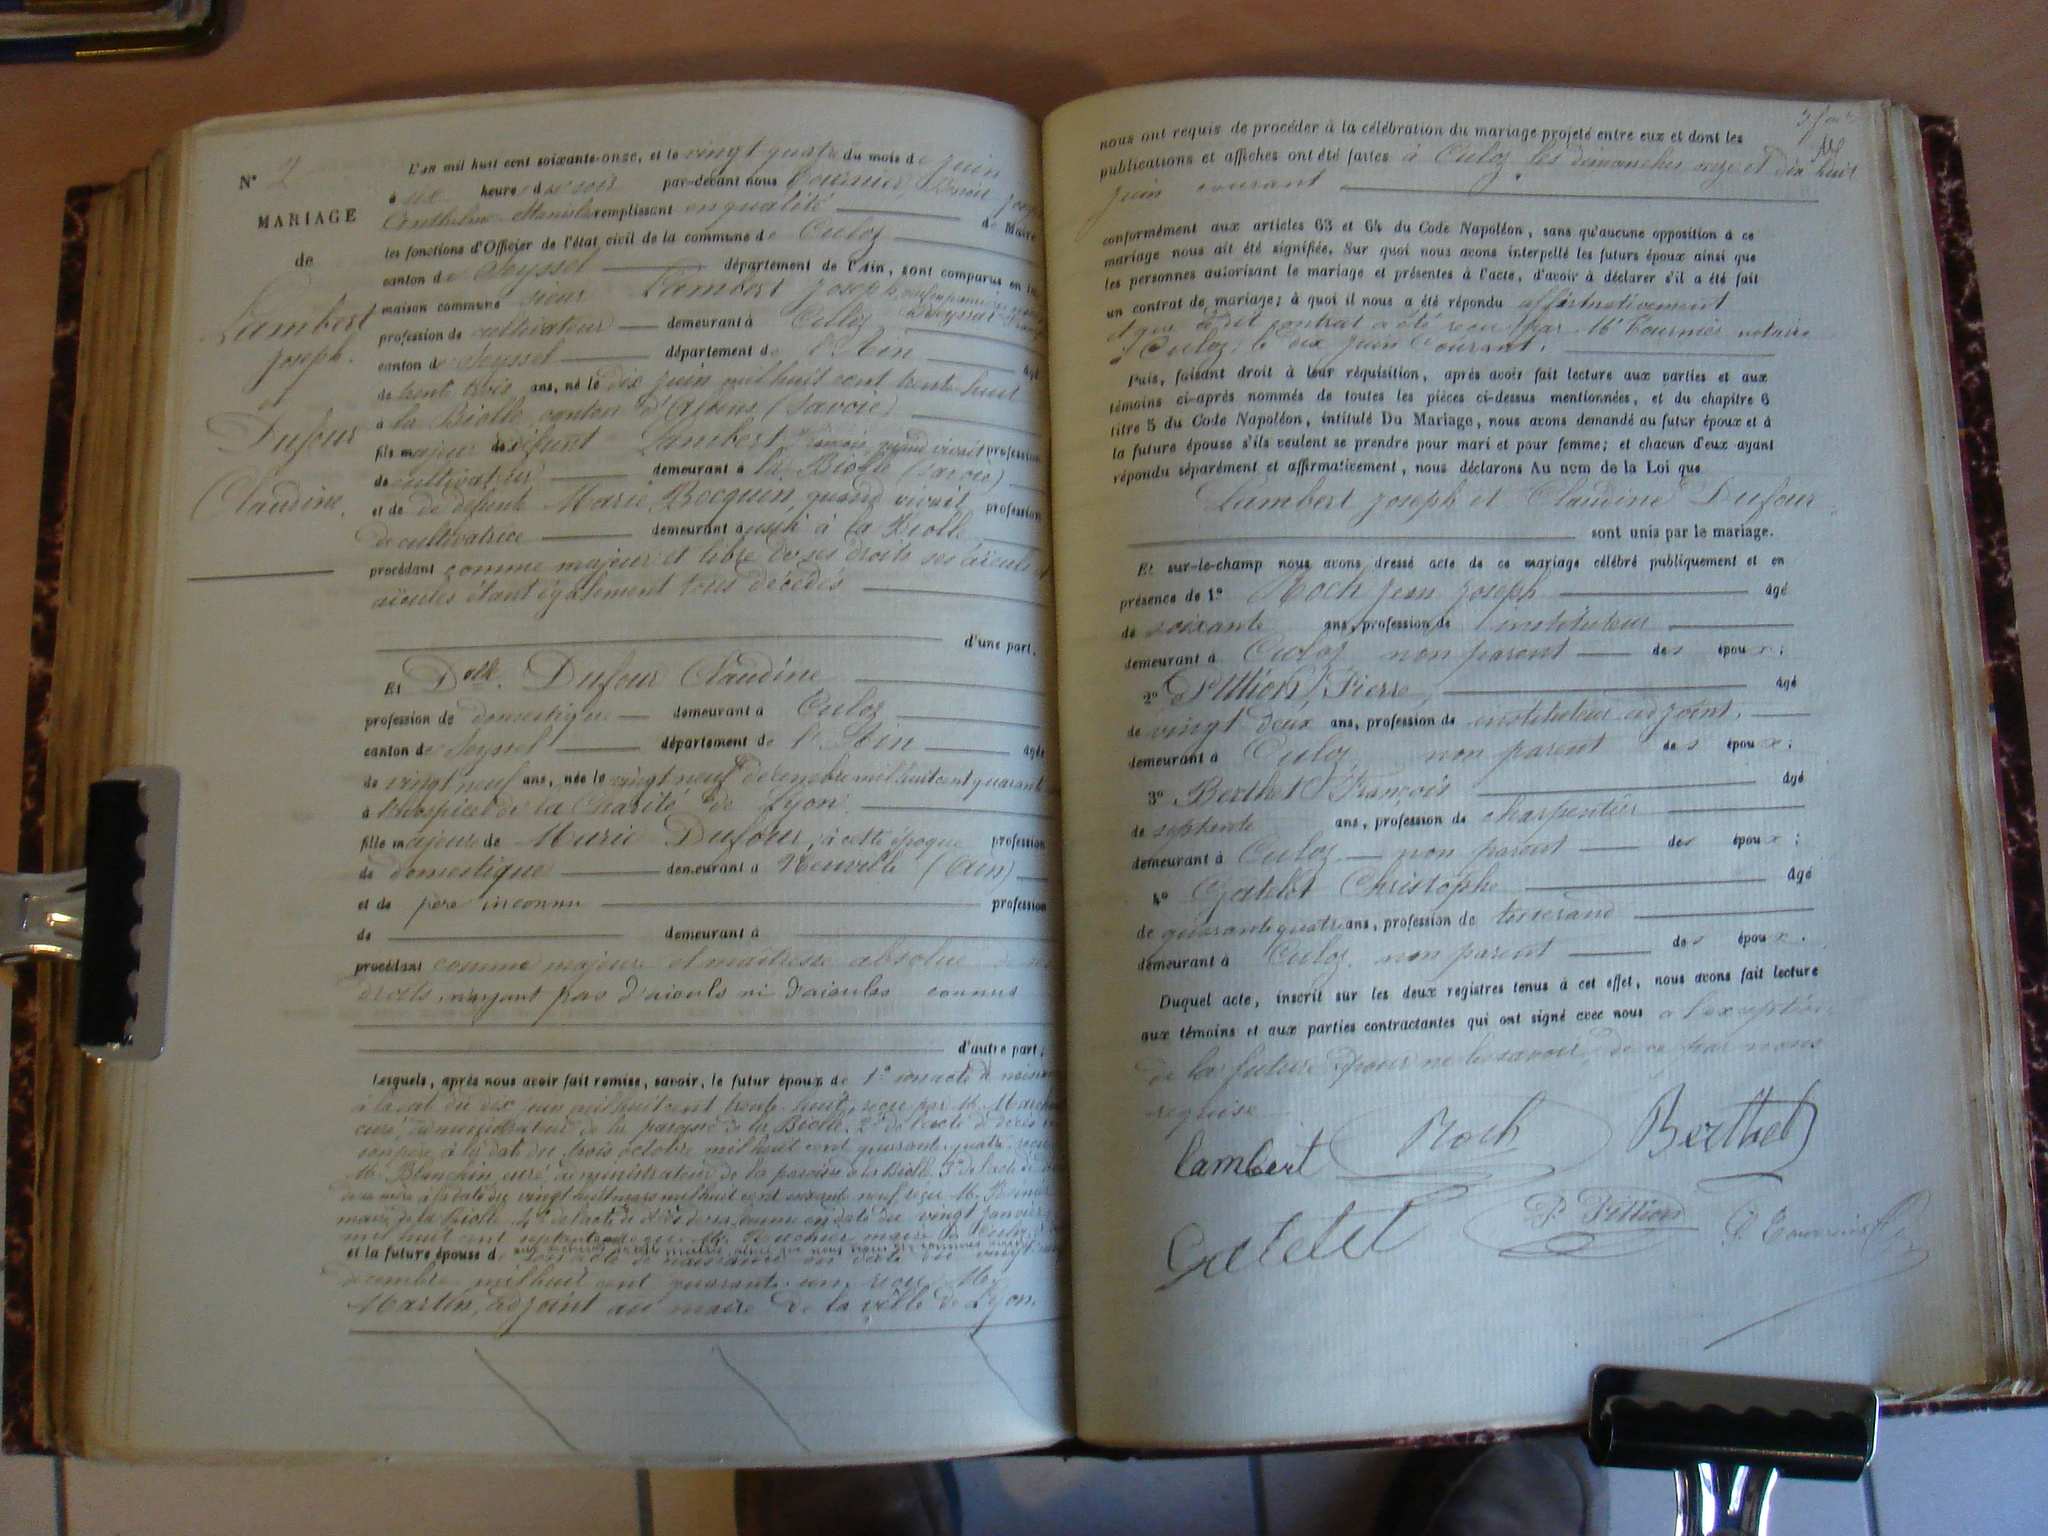 N° 2
MARIAGE
de
Lambert
Joseph.
et
Dufour
Claudine.
L'an mil huit cent soixante-onze, et le vingt quatre du mois de juin
à six heures du soir par-devant nous Benoit Joseph
Anthelme Stanislas remplissant en qualité de Maire
les fonctions d'Officier de l'état civil de la commune de Culoz
canton de Seyssel département de l'Ain, sont comparus en la
maison commune sieur Lambert Joseph
profession de cultivateur demeurant à Culoz
canton de Seyssel département de l'Ain âgé
de trent trois ans, né le dix juin mil huit cent trente huit
à la Biolle canton d'Albens (Savoie)
fils majeur de défunt Lambert quand vivait profession
de cultivateur demeurant à la Biolle (Savoie)
et de de défunte Marie Bocquin, quand vivait profession
de cultivatrice demeurant à la Biolle
procédant comme majeur et libre de ses droits ses aïeuls et
aïeules étant également tous décédés
d'une part.
Et Delle. Dufour Claudine
profession de domestique demeurant à Culoz
canton de Seyssel département de l'Ain âgée
de vingt neuf ans, née le vingt neuf décembre mil huit cent quarant
à l'hospice de la Charité de Lyon.
fille majeure de Marie Dufour, à cette époque profession
de domestique demeurant à Neuville (Ain)
et de père inconnu profession
de demeurant à
procédant comme majeure et maîtresse absolue de ses
droits, n'ayant pas d'aïeuls ni d'aïeules connus
d'autre part;
Lesquels, après nous avoir fait remise, savoir, le futur époux de 1° son acte de naiss
à la date du dix juin mil huit cent trente huit, reçu par M.
curé, administrateur de la paroisse de la Biolle. 2° de l'acte de décès
son père, à la date du trois octobre mil huit cent quarante quatre, reçu
M. Blanchin curé administrateur de la paroisse de la Biolle. 3° de l'acte de
de sa mère à la date du vingt huit mars mil huit cent soixante neuf, reçu M.
maire de la Biolle 4° de l'acte de décès en date du vingt janvier
mil huit cent maire
et la future épouse de son acte de naissance en date du vingt
décembre mil huit cent quarante un, reçu Mr
Martin, adjoint au maire de la ville de Lyon.
nous ont requis de procéder à la célébration du mariage projeté entre eux et dont les
publications et affiches ont été faites à Culoz les dimanches onze et dix huit
juin courant
conformément aux articles 63 et 64 du Code Napoléon, sans qu'aucune opposition à ce
mariage nous ait été signifiée. Sur quoi nous avons interpellé les futurs époux ainsi que
les personnes autorisant le mariage et présentes à l'acte, d'avoir à déclarer s'il a été fait
un contrat de mariage; à quoi il nous a été répondu affirmativement
et que le dit contrat a été reçu par Me Tournier notaire
à Culoz, le dix juin courant.
Puis, faisant droit à leur réquisition, après avoir fait lecture aux parties et aux
témoins ci-après nommés de toutes les pièces ci-dessus mentionnées, et du chapitre 6
titre 5 du Code Napoléon, intitulé Du Mariage, nous avons demandé au futur époux et à
la future épouse s'ils veulent se prendre pour mari et pour femme; et chacun d'eux ayant
répondu séparément et affirmativement, nous déclarons Au nom de la Loi que
Lambert Joseph et Claudine Dufour
sont unis par le mariage.
Et sur-le-champ nous avons dressé acte de ce mariage célébré publiquement et en
présence de 1° Roch Jean Joseph âgé
de soixante ans, profession de instituteur
demeurant à Culoz non parent des époux;
2° Pittion Pierre, âgé
de vingt deux ans, profession de instituteur adjoint.
demeurant à Culoz, non parent des époux;
3° Berthet François âgé
de septante ans, profession de charpentier
demeurant à Culoz non parent des époux;
4° Gatelet Christophe âgé
de quarante quatre ans, profession de tisserand
demeurant à Culoz, non parent des époux.
Duquel acte, inscrit sur les deux registres tenus à cet effet, nous avons fait lecture
aux témoins et aux parties contractantes qui ont signé avec nous à l'exception
de la future pour ne le savoir, de ce par nous
requise
lambert Roch Berthet
Gatelet P. Pittion